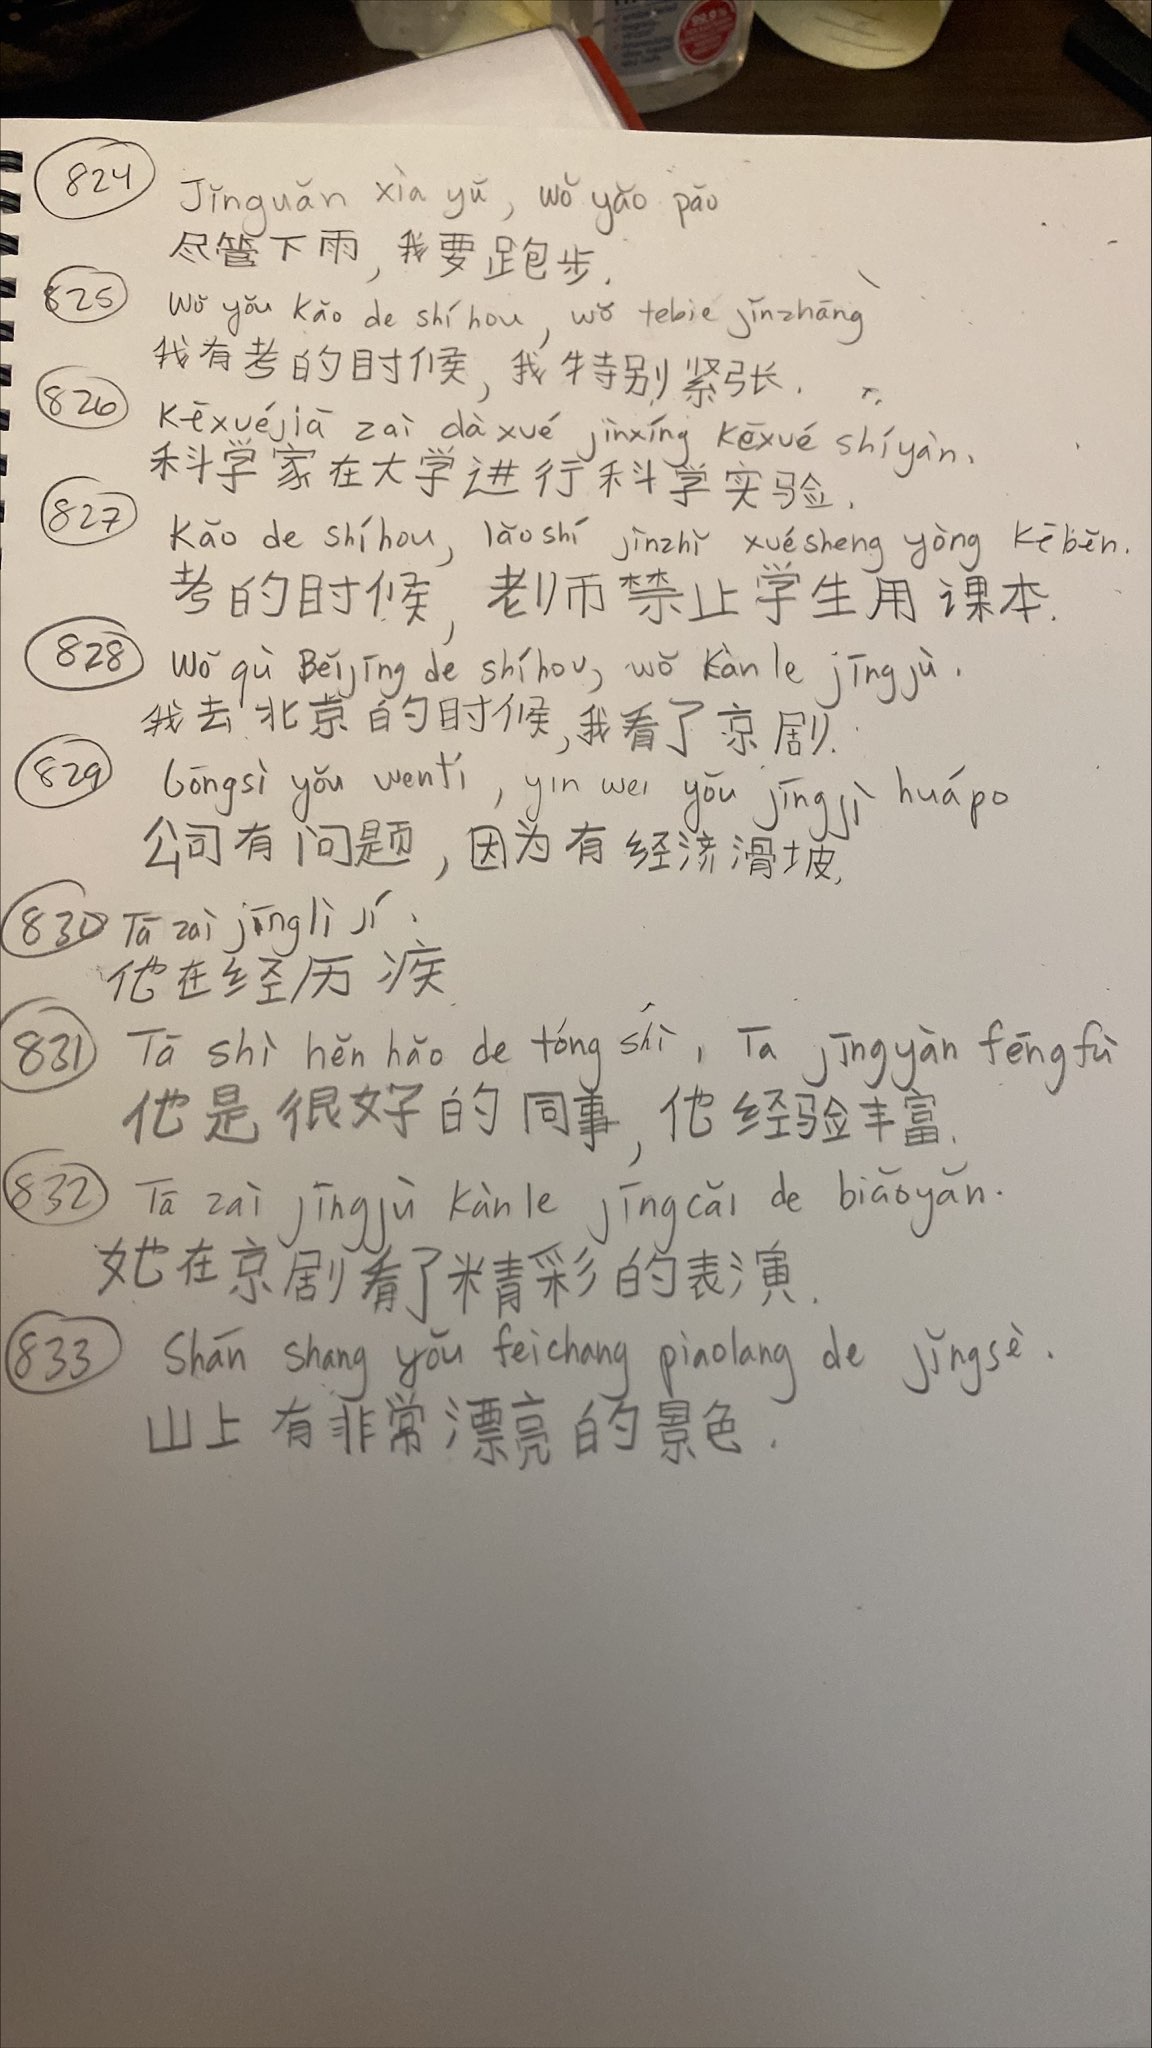 99.9%
824 Jǐnguǎn xìa yǔ, wǒ yǎo pǎo
尽管下雨,我要跑步.
825 Wǒ yǒu kǎo de shíhou, wǒ tebie jǐnzhāng
我有考的时候,我特别紧张.
826 Kēxuéjiā zaì dàxué jìnxíng kēxué shíyàn.
科学家在大学进行科学实验.
827 Kǎo de shíhou, lǎoshí jìnzhǐ xuésheng yòng kēběn.
考的时候,老师禁止学生用课本.
828 Wǒ qù Běijīng de shíhou, wǒ kànle jīngjù.
我去北京的时候,我看了京剧.
829 Gōngsì yǒu wentí, yin wei yǒu jīngjì huápo
公司有问题,因为有经济滑坡.
830 Tā zaì jīnglì jí.
他在经历疾
831 Tā shì hěn hǎo de tóng shì, Ta jīngyàn fēngfù
他是很好的同事,他经验丰富.
832 Tā zaì jīngjù kànle jīngcǎi de biǎoyǎn.
她在京剧看了精彩的表演.
833 Shān shang yǒu feichang piaolang de jǐngsè.
山上有非常漂亮的景色.